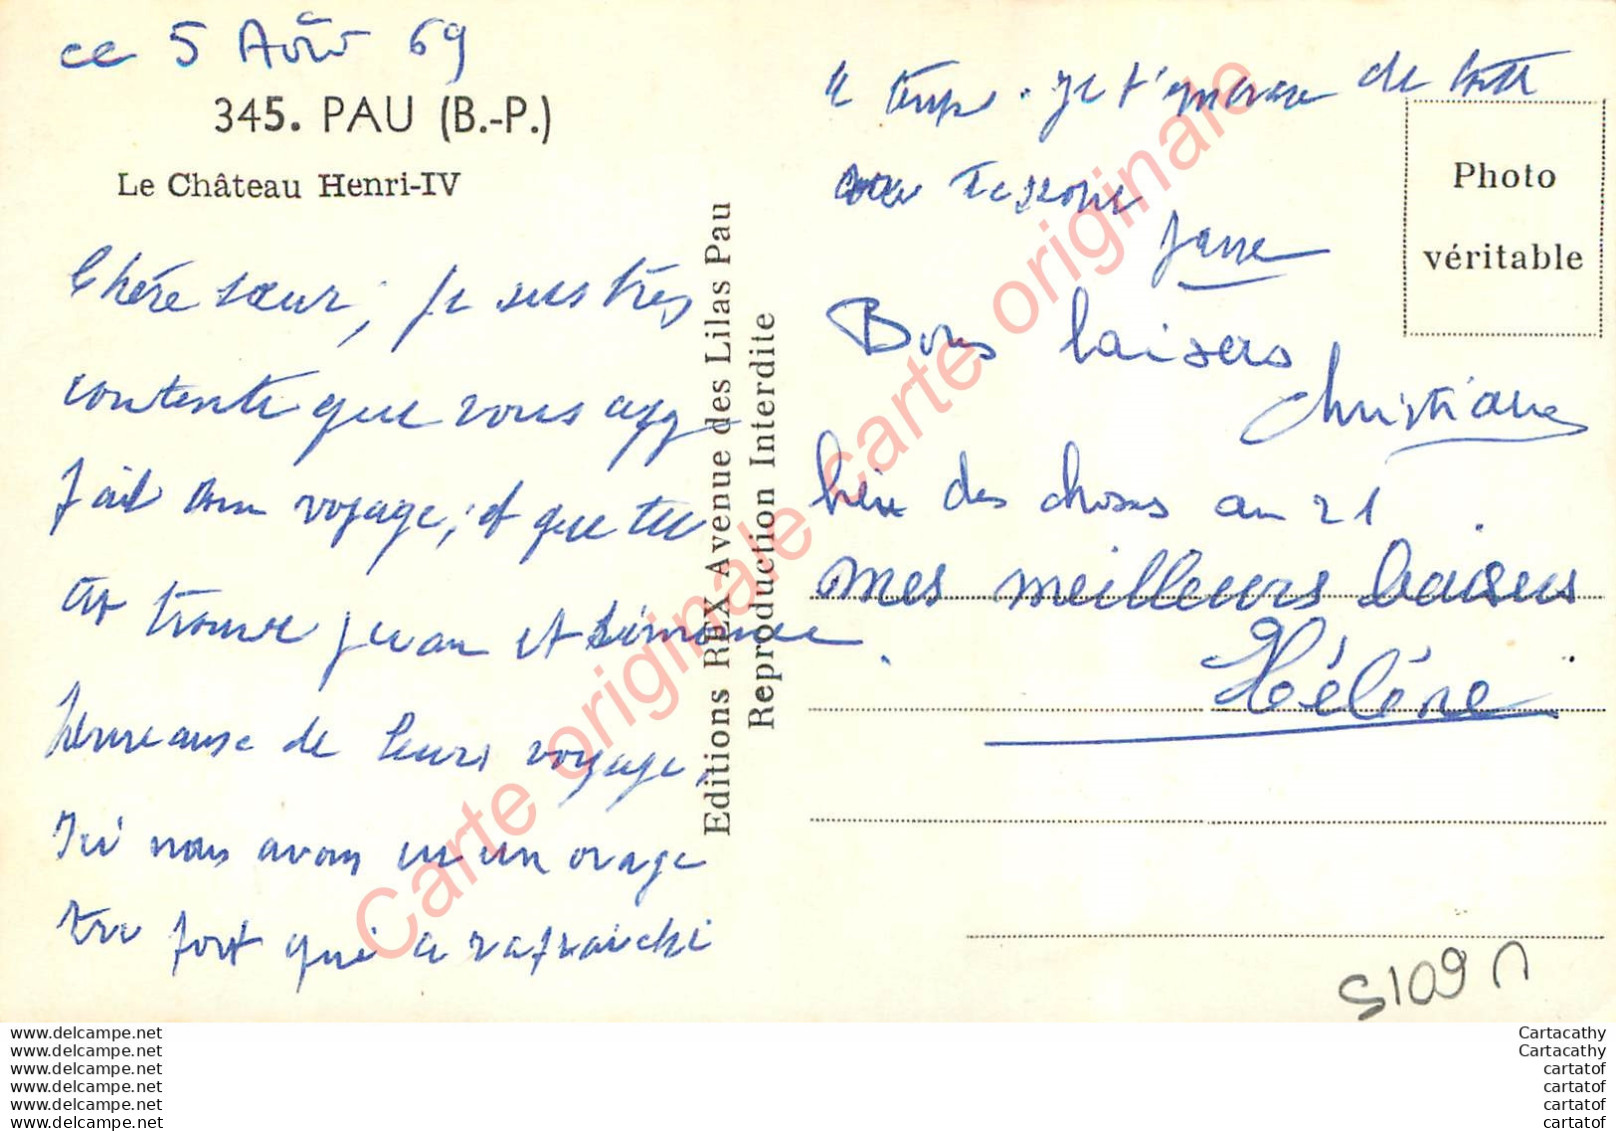 ce 5 Août 69
345. PAU (B.-P.)
Le Château Henri-IV
Chère sœur, je suis très
contente que vous ayz
fait bon voyage, et que tu
as trouvé Jean et Simonne
heureause de leurs voyage,
Ici nous avons eu un orage
tre fort qui a rafraichi
Editions REX Avenue des Lilas Pau
Reproduction Interdite
le temps. Je t'embrasse de
Bons baisers
Christiane
bien des choses au 21.
mes meilleurs baisers
Hélène
Photo
véritable
Carte originale carte originale
Carte originale
S109
www.delcampe.net
www.delcampe.net
www.delcampe.net
www.delcampe.net
www.delcampe.net
www.delcampe.net
Cartacathy
Cartacathy
cartatof
cartatof
cartatof
cartatof